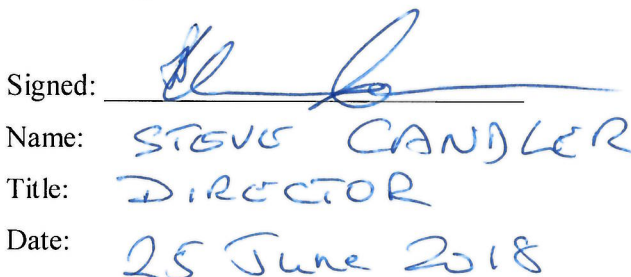 Signed:
Name: STEVE CANDLER
Title: DIRECTOR
Date: 25 June 2018